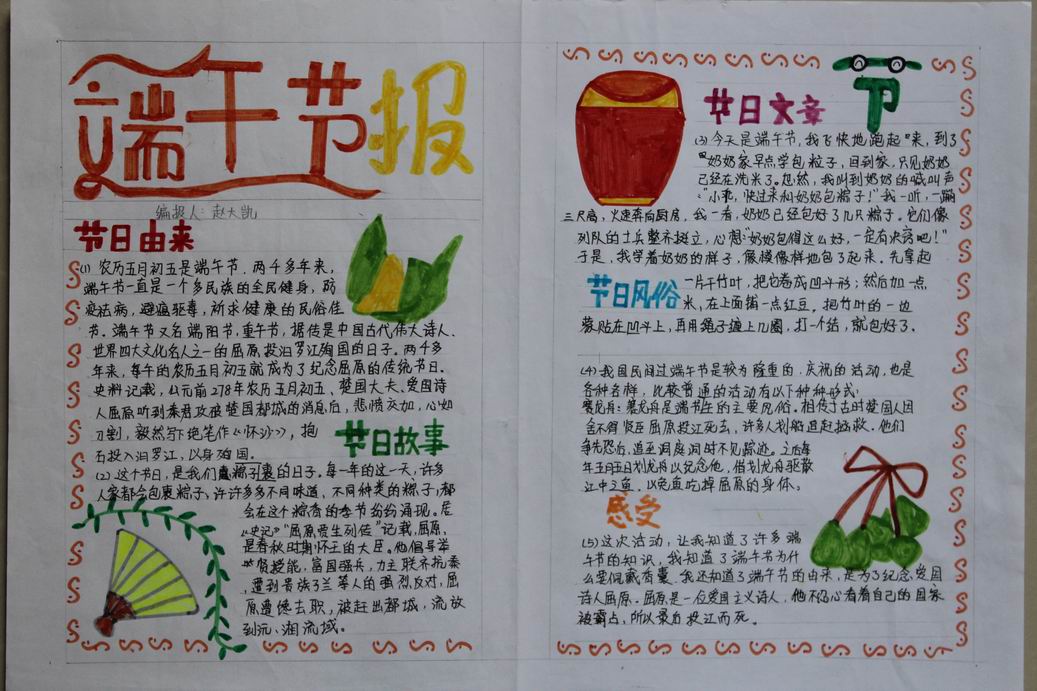 端午节报
编报人：赵大凯
节日由来
(1) 农历五月初五是端午节．两千多年来，
端午节一直是一个多民族的全民健身，防
疫祛病，避瘟驱毒，祈求健康的民俗佳
节．端午节又名端阳节，重午节，据传是中国古代伟大诗人、
世界四大文化名人之一的屈原投汨罗江殉国的日子。两千多
年来，每年的农历五月初五就成为了纪念屈原的传统节日。
史料记载，公元前278年农历五月初五、楚国大夫、爱国诗
人屈原听到秦君攻破楚国都城的消息后，悲愤交加，心如
刀割，毅然写下绝笔作《怀沙》，抱
石投入汨罗江，以身殉国。
节日故事
(2) 这个节日，是我们裹粽子裹的日子。每一年的这一天，许多
人家都会包裹粽子，许许多多不同味道，不同种类的粽子，都
会在这个粽香的季节纷纷涌现。居
《史记》"屈原贾生列传"记载，屈原，
是春秋时期怀王的大臣。他倡导举
贤授能，富国强兵，力主联齐抗秦
，遭到贵族子兰等人的强烈反对，屈
原遭馋去职，被赶出都城，流放
到沅、湘流域。
节
节日文章
(3) 今天是端午节，我飞快地跑起来，到了
奶奶家早点学包粒子，回到家，只见奶奶
已经在洗米了。忽然，我叫到奶奶的喊叫声
："小飞，快过来和奶奶包粽子！"我一听，一蹦
三尺高，火速奔向厨房，我一看，奶奶已经包好了几只粽子。它们像
列队的士兵整齐挺立，心想："奶奶包得这么好，一定有决窍吧！"
于是，我学着奶奶的样子，像模像样地包了起来．先拿起
一片干竹叶，把它卷成凹斗形；然后加一点
米，在上面铺一点红豆。把竹叶的一边
紧贴在凹斗上，再用绳子缠上几圈，打一个结，就包好了．
节日风俗
(4) 我国民间过端午节是较为隆重的．庆祝的活动，也是
各种各样，比较普通的活动有以下种种形式：
赛龙舟：赛龙舟是端节午的主要风俗。相传于古时楚国人因
舍不得贤臣屈原投江死去，许多人划船追赶拯救。他们
争先恐后，追至洞庭湖时不见踪迹。之后每
年五月五日划龙舟以纪念他，借划龙舟驱散
江中之鱼．以免鱼吃掉屈原的身体。
感受
(5) 这次活动，让我知道了许多端
午节的知识，我知道了端午节为什
么要佩戴香囊．我还知道了端午节的由来，是为了纪念爱国
诗人屈原．屈原是一位爱国主义诗人，他不忍心看着自己的国家
被霸占，所以最后投江而死。